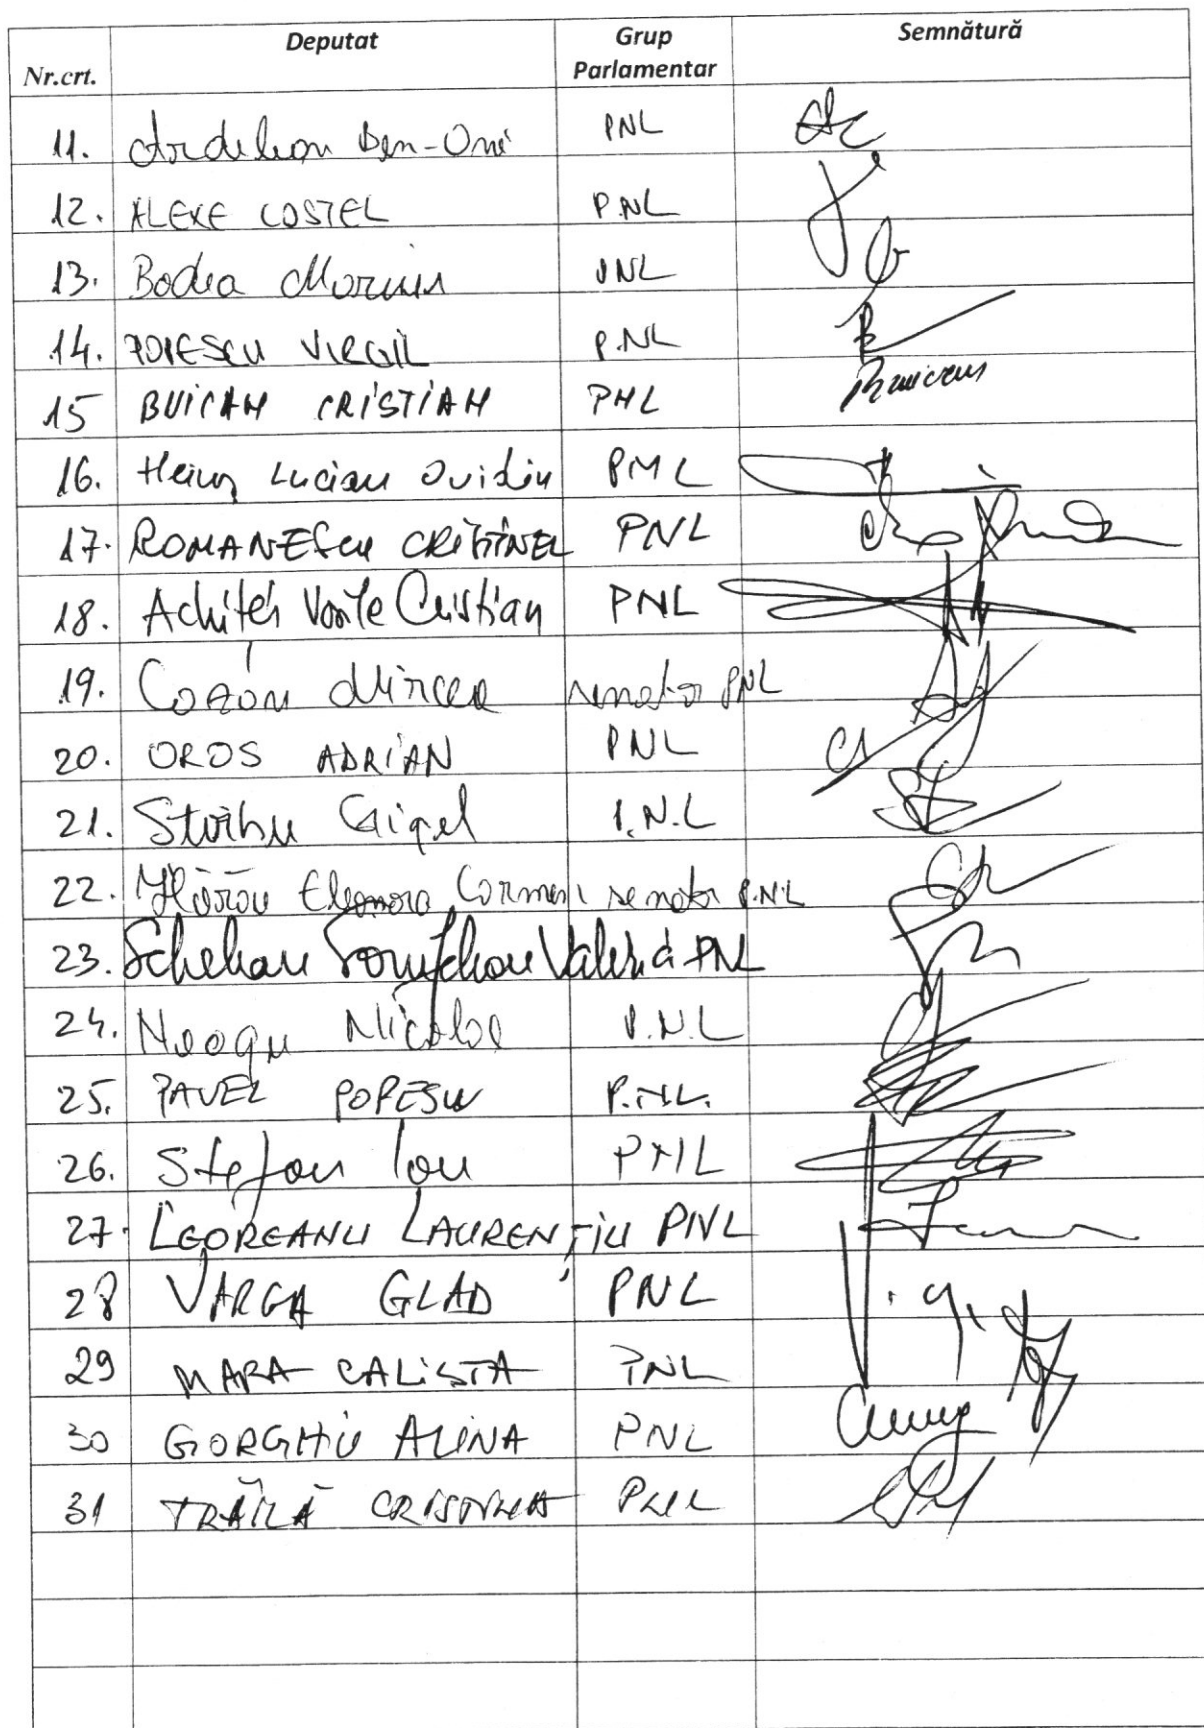 Nr.crt. Deputat Grup Parlamentar Semnătură
11. Ardelean Ben-Oni PNL
12. ALEXE COSTEL PNL
13. Bodea Marius PNL
14. POPESCU VIRGIL P.NL
15 BUICAN CRISTIAN PNL
16. Heiuș Lucian Ovidiu PNL
17. ROMANESCU CRISTINEL PNL
18. Achiței Vasile Cristian PNL
19. Cazan Mircea senator PNL
20. OROS ADRIAN PNL
21. Știrbu Gigel P.N.L
22. Eleonora Carmen senator P.NL
23. Schelean Valeria PNL
24. Neagu Nicolae P.N.L
25. PAVEL POPESCU P.NL.
26. Ștefan Ion PNL
27. LEOREANU LAURENȚIU PNL
28 VARGA GLAD PNL
29 MARA CALISTA PNL
30 GORGHIU ALINA PNL
31 TRĂILĂ CRISTINA PNL